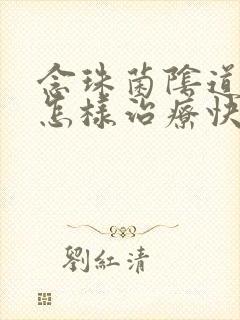 念珠菌陰道
怎樣治療快
劉紅清